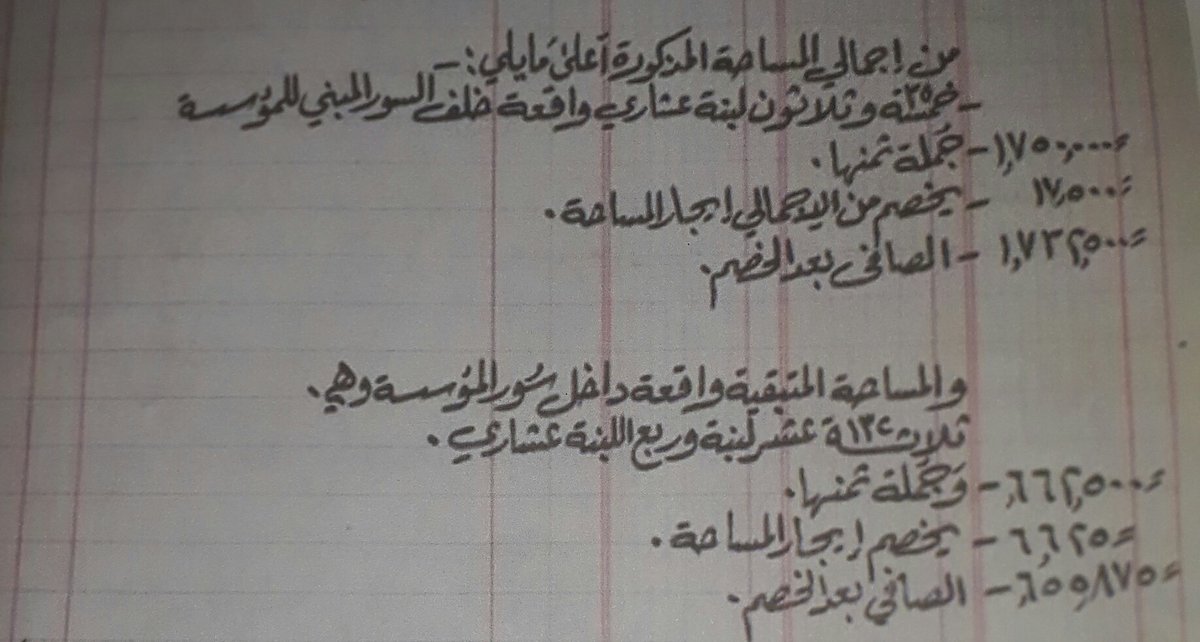 من إجمالي المساحة المذكورة أعلىٰ مايلي:-
- خمسة ٣٥ وثلاثون لبنة عشاري واقعة خلف السور المبني للمؤسسة
١,٧٥٠,٠٠٠= - جُملة ثمنها.
١٧,٥٠٠= - يخصم من الإجمالي إيجار المساحة.
١,٧٣٢,٥٠٠= - الصافي بعد الخصم.
والمساحة المتبقية واقعة داخل سُور المؤسسة وهي.
ثلاثة عشر لبنة وربع اللبنة عشاري.
,٦٦٢,٥٠٠= - وَجُملة ثمنها.
٦,٦٢٥= - يخصم إيجار المساحة.
,٦٥٥,٨٧٥= - الصافي بعد الخصم.